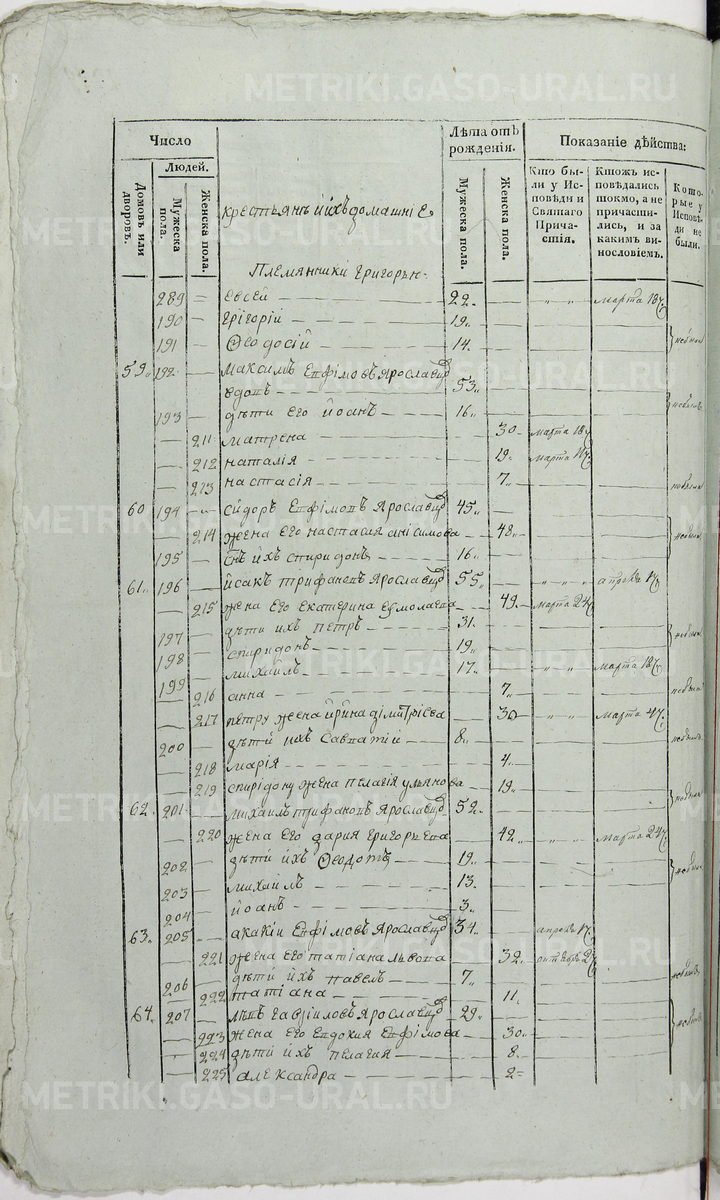 METRIKI.GASO-URAL.RU
Число
Лѣта отъ рожденія.
Показаніе дѣйства:
Домовъ или дворовъ.
Людей.
Мужеска пола.
Женска пола.
крестьянъ и ихъ домашніе
Мужеска пола.
Женска пола.
Кто были у Исповѣди и Святаго Причастія.
Ктожъ исповѣдались токмо, а не причастились, и за какимъ винословіемъ.
Которые у Исповѣди не были.
Племянники Григорью
289 — Евсей — 22. — „ „ марта 18
190 — Григорій — 19. —
191 — Ѳеодосій — 14. — небыли
59. 192 — Максимъ Ефимовъ Ярославцъ
вдовъ — 53. —
193 — дѣти его Йоанъ — 16. — небыли
— 211 матрена — 30 марта 18
— 212 наталія — 19. марта
— 213 настасія — 7. небыла
60 194 — сидоръ Ефимовъ Ярославцъ 45. —
— 214 жена его настасия анисимова — 48. небыли
195 — Снъ ихъ спиридонъ — 16. —
61. 196 — Исакъ трифановъ Ярославцъ 55. — „ „ апреля
— 215 жена его екатерина ермолаева — 49. марта 24
197 — дѣти ихъ петръ — 31. —
198 — спиридонъ — 19. — небыли
199 — михаилъ — 17. — „ „ марта 18
— 216 анна — 7. небыла
— 217 петру жена ирина димитріева — 30 „ „ марта 4
200 — дѣти ихъ Савватій — 8. — небыли
— 218 марія — 4.
— 219 спиридону жена пелагія ульянова — 19. небыли
62. 201 — михаилъ трифановъ Ярославцъ 52. —
— 220 жена его дария григорьева — 42. „ „ марта 24
202 — дѣти ихъ Ѳеодотъ — 19. —
203 — михаилъ — 13. — небыли
204 — йоанъ — 3. —
63. 205 — акакий Ефимовъ Ярославцъ 34. — апреля
— 221 жена его татіана львова — 32.
206 — дѣти ихъ павелъ — 7. — небыли
222 татіана — 11.
64. 207 — левъ гавриловъ Ярославцъ 29. — небыли
— 223 жена его Евдокия Ефимова — 30.
— 224 дѣти ихъ пелагея — 8.
— 225 александра — 2